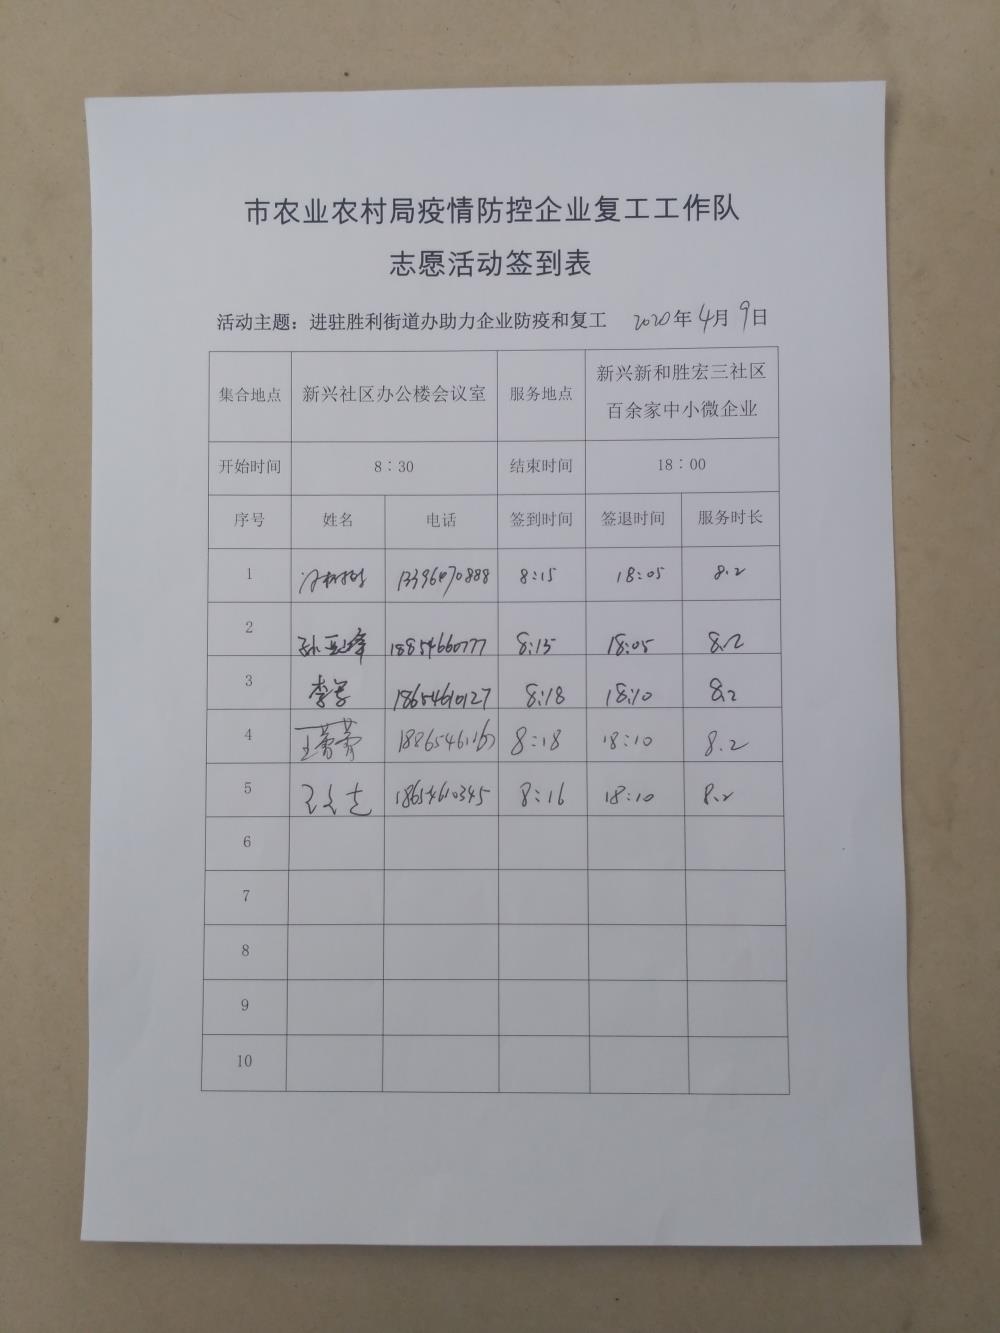 市农业农村局疫情防控企业复工工作队
志愿活动签到表
活动主题：进驻胜利街道办助力企业防疫和复工 2020年4月9日
集合地点 新兴社区办公楼会议室 服务地点 新兴新和胜宏三社区
百余家中小微企业
开始时间 8：30 结束时间 18：00
序号 姓名 电话 签到时间 签退时间 服务时长
1 8:15 18:05 8.2
2 18854660777 8:15 18:05 8.2
3 18654610127 8:18 18:10 8.2
4 王蕾蕾 8:18 18:10 8.2
5 18654610345 8:16 18:10 8.2
6
7
8
9
10